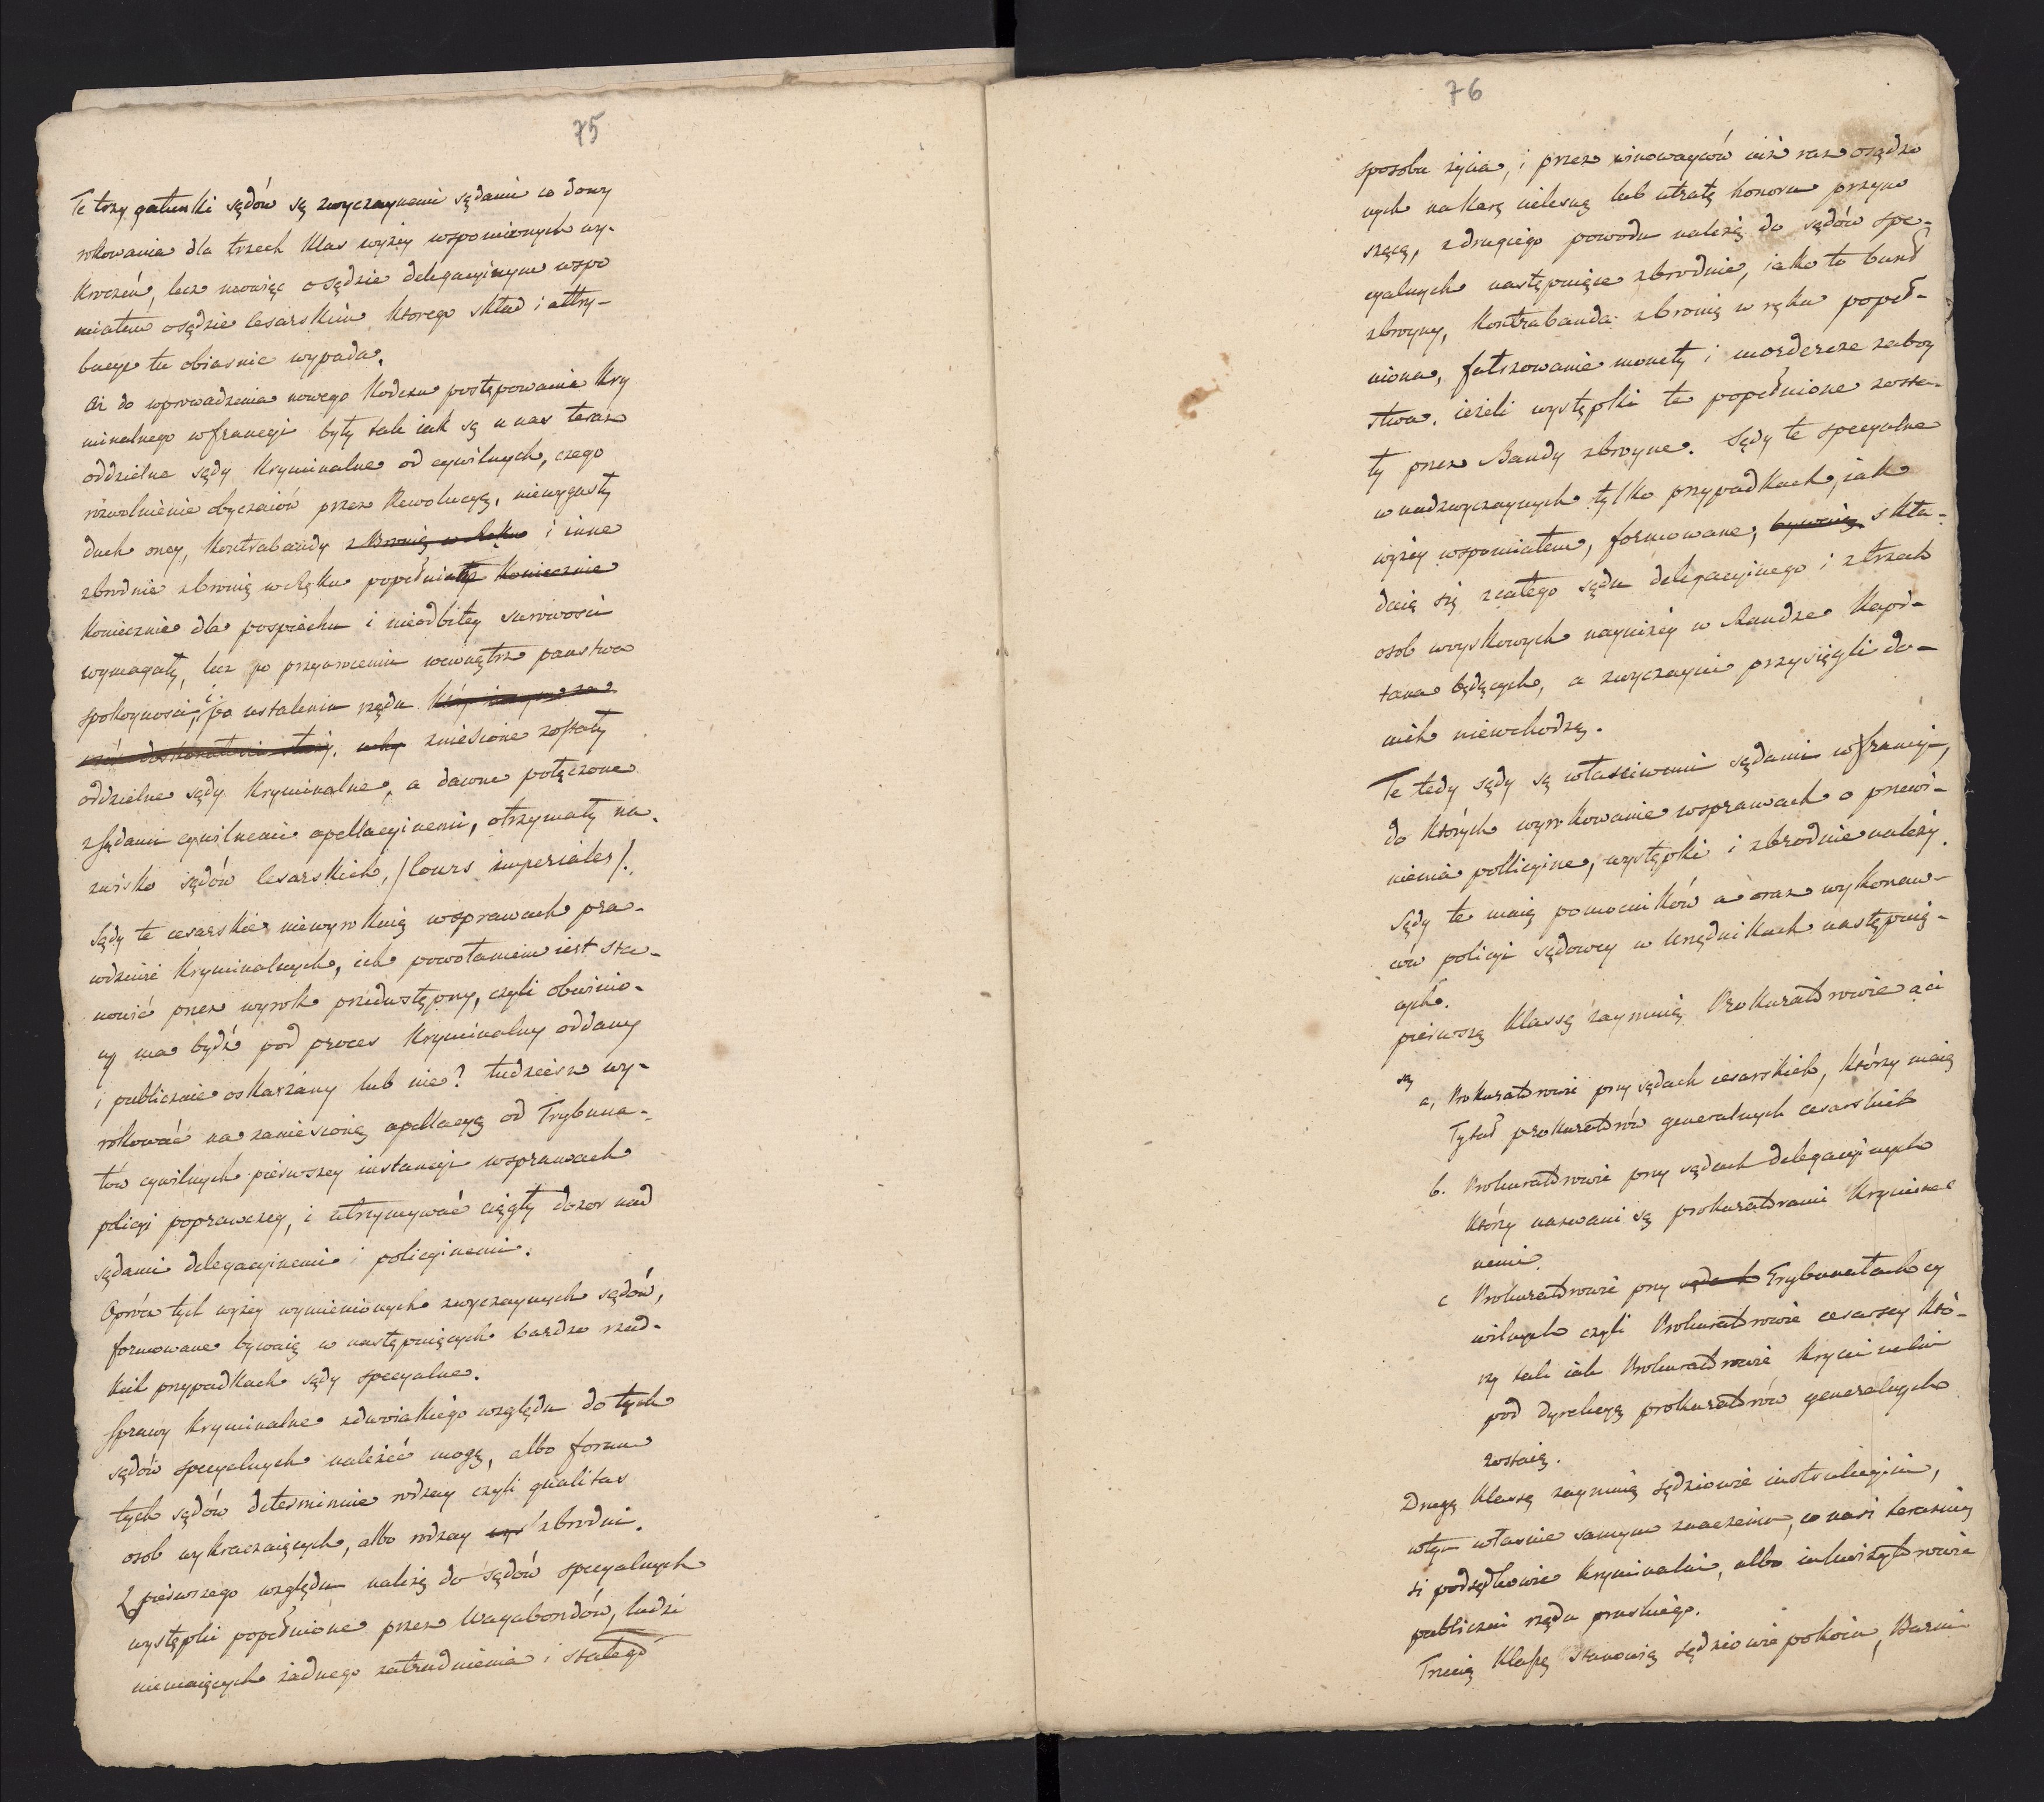 75
Te trzy gatunki sędów są zwyczaynemi sędami co do wy
rokowania dla trzech klas wyżey wspomionych wy-
kroczeń, lecz mowiąc o sędzie delegacyinym wspo
mniałem o sędzie cesarskim ktorego skład i attry-
bucye tu obiasnic wypada.
Aż do wprowadzenia nowego kodexu postępowania kry
minalnego w francyi były tak iak są u nas teraz
oddzielne sędy kryminalne od cywilnych, czego
rozwolnienie obyczaiów przez Rewolucyą, niewygasły
duch oney, kontrabandy z Bronią w Ręku i inne
zbrodnie zbronią w ręku popełniane koniecznie
koniecznie dla pospiechu i nieodbitey surowosci
wymagały, lecz po przywroceniu wewnątrz panstwa
spokoynosci, i po ustaleniu rządu
zniesione zostały
oddzielne sędy kryminalne, a dawne połączone
z sędami cywilnemi apellacyinemi, otrzymały na-
zwisko sędów cesarskich, /Cours imperiales/.
Sędy te cesarskie niewyrokuią wsprawach pra-
wdziwie kryminalnych, ich powołaniem iest sta-
nowić przez wyrok przedwstępny, czyli obwinio-
ny ma bydź pod proces kryminalny oddany
i publicznie oskarżany lub nie? tudzież wy-
rokować na zaniesioną apellacyą od Trybuna-
łów cywilnych pierwszey instancyi wsprawach
policyi poprawczey, i utrzymywać ciągły dozor nad
sędami delegacyinemi i policyinemi.
Oprócz tych wyżey wymienionych zwyczaynych sędów,
formowane bywaią w następuiących bardzo rzad-
kich przypadkach sędy specyalne.
Sprawy kryminalne zdwoiakiego względu do tych
sędów specyalnych należeć mogą, albo forum
tych sędów determinuie rodzay czyli qualitas
osob wykraczaiących, albo rodzay wys zbrodni.
Z pierwszego względu należą do sędów specyalnych
występki popełnione przez Wagabondów, ludzi
niemaiących żadnego zatrudnienia i stałego
76
sposobu życia, i przez winowayców iuż raz osądzo
nych na karę cielesną lub utratę honoru przyno
szącą, z drugiego powodu należą do sędów spe-
cyalnych następuiące zbrodnie, iako to bunt
zbroyny, kontrabanda zbronią w ręku popeł-
niona, fałszowanie monety i mordercze zaboy
stwa, ieżeli występki te popełnione zosta-
ły przez Bandy zbroyne. Sędy te specyalne
w nadzwyczaynych tylko przypadkach, iak
wyżey wspomiałem, formowane, bywaią skła-
daią się z całego sędu delegacyinego i z trzech
osob woyskowych nayniżey w Randze kapi-
tana będących, a zwyczayni przysięgli do
nich niewchodzą.
Te tedy sędy są właściwemi sędami w francyi,
do których wyrokowanie wsprawach o przewi-
nienia pollicyine, występki i zbrodnie należy.
Sędy te maią pomocników a oraz wykonaw-
ców policyi sędowey w Urzędnikach następuią-
cych.
pierwszą klassę zaymuią Prokuratorowie a ci
są
a, Prokuratorowie przy sędach cesarskich, którzy maią
Tytuł prokuratorów generalnych cesarskich
b. Prokuratorowie przy sędach delegacyinych
którzy nazwani są prokuratorami kryminal
nemi.
c Prokuratorowie przy sędach Trybunałach cy
wilnych czyli Prokuratorowie cesarscy któ-
rzy tak iak Prokuratorowie kryminalni
pod dyrekcyą prokuratorów generalnych
zostaią.
Drugą klassę zaymuią sędziowie instrukcyini,
wtym właśnie samym znaczeniu, co nasi terazniey
si podsędkowie kryminalni, albo inkwizytorowie
publiczni rządu pruskiego.
Trzecią klassę stanowią sędziowie pokoiu,